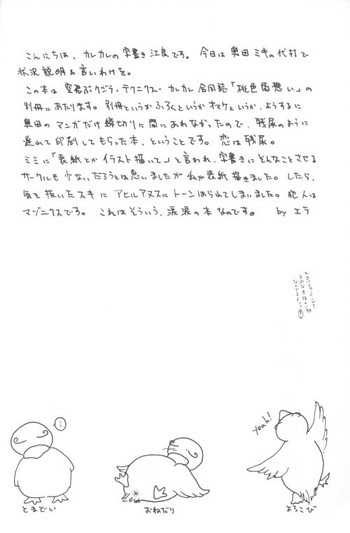 こんにちは、カレカレの字書き江良です。今日は奥田ミキの代打で
状況説明&言いわけを。
この本は 空君ぶクゴラ・テクニクス・カレカレ 合同誌「桃色片想い」の
別冊にあたります。別冊というかふろくというかオマケというか、ようするに
奥田の マンガだけ締切りに間にあわなかったので、残尿のように
遅れて印刷してもらった本、ということです。恋は残尿。
ミミに「表紙とかイラスト描いて」と言われ、字書きにどんなことさせる
サークルも少ないだろうとは思いましたが 私が表紙描きました。したら、
気を抜いたスキに アヒルアヌスにトーンはられてしまいました。犯人は
マゾニクスです。 これはそういう、涙涙の本なのです。 by エラ
yeah!
とまどい
おねだり
よろこび